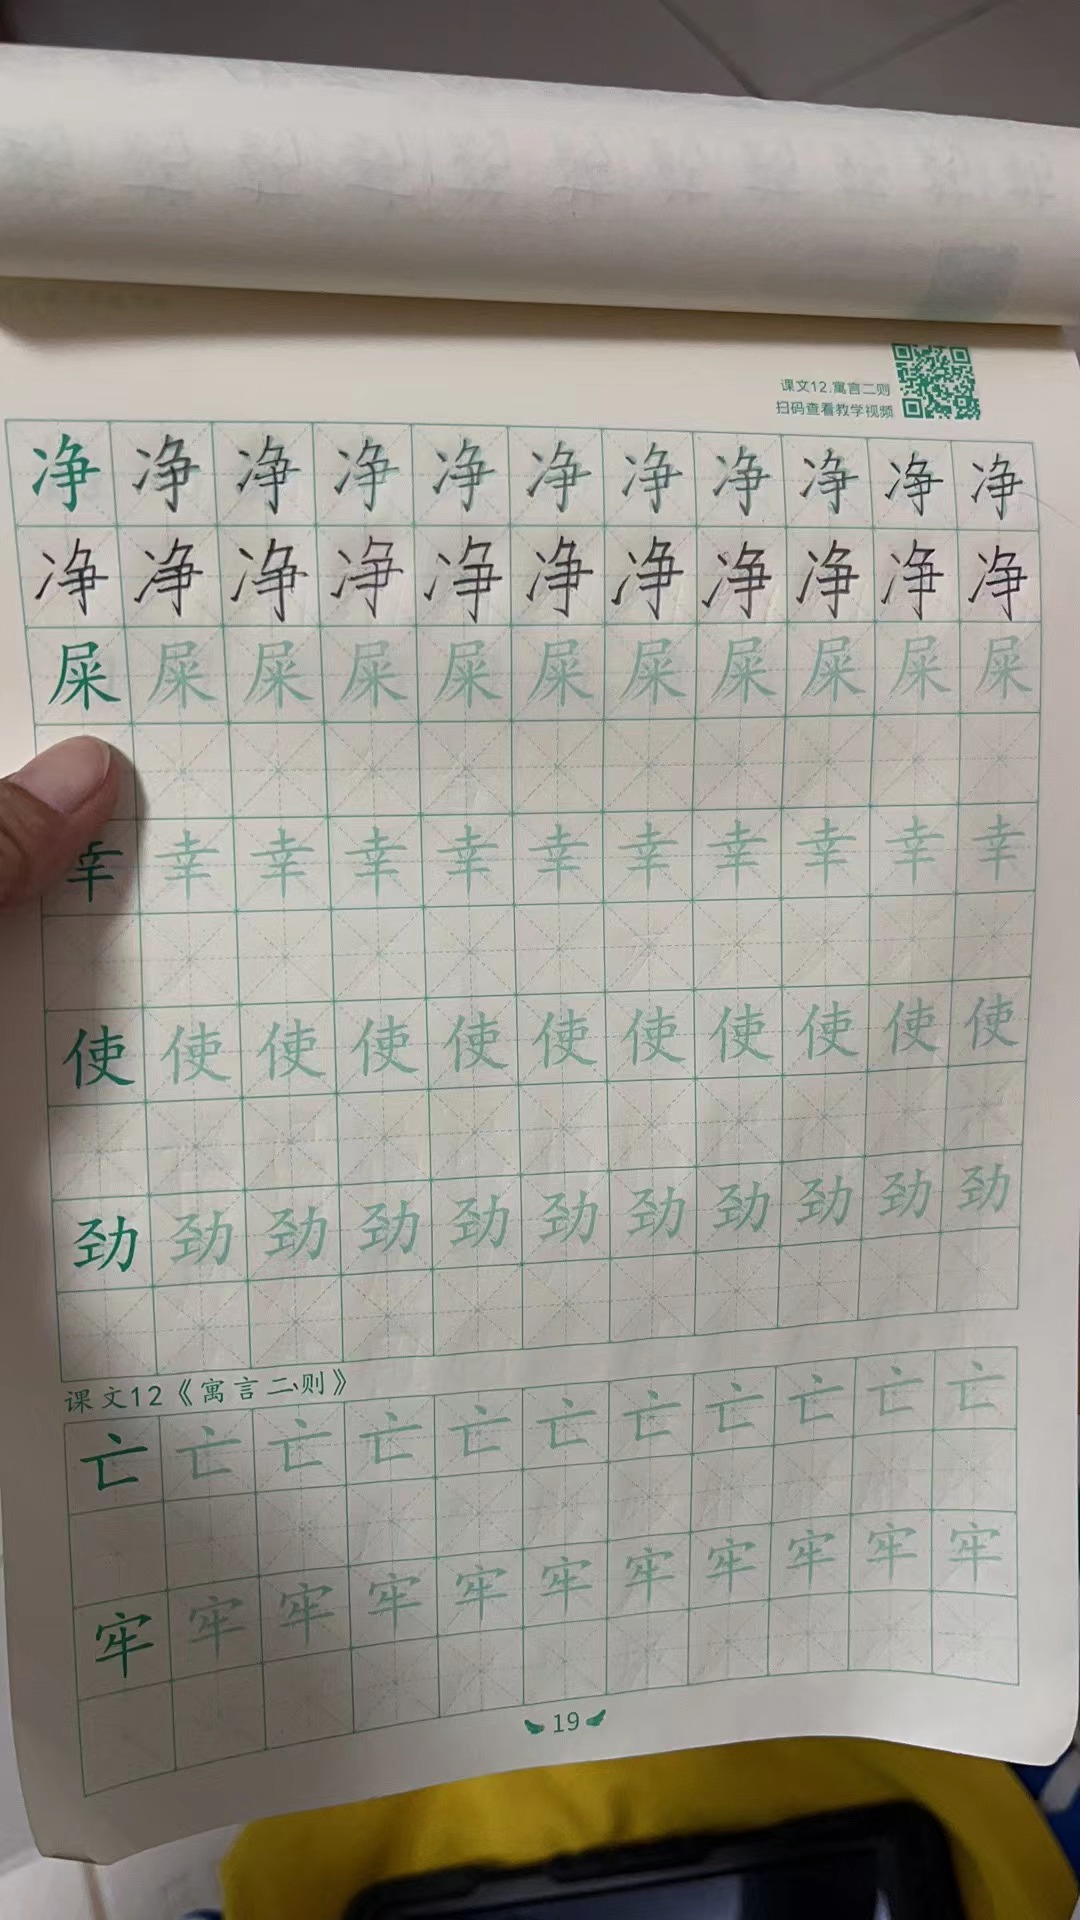 课文12.寓言二则
扫码查看教学视频
净净净净净净净净净净净
净净净净净净净净净净净
屎屎屎屎屎屎屎屎屎屎屎
幸幸幸幸幸幸幸幸幸幸幸
使使使使使使使使使使使
劲劲劲劲劲劲劲劲劲劲劲
课文12《寓言二则》
亡亡亡亡亡亡亡亡亡亡亡
牢牢牢牢牢牢牢牢牢牢牢
19